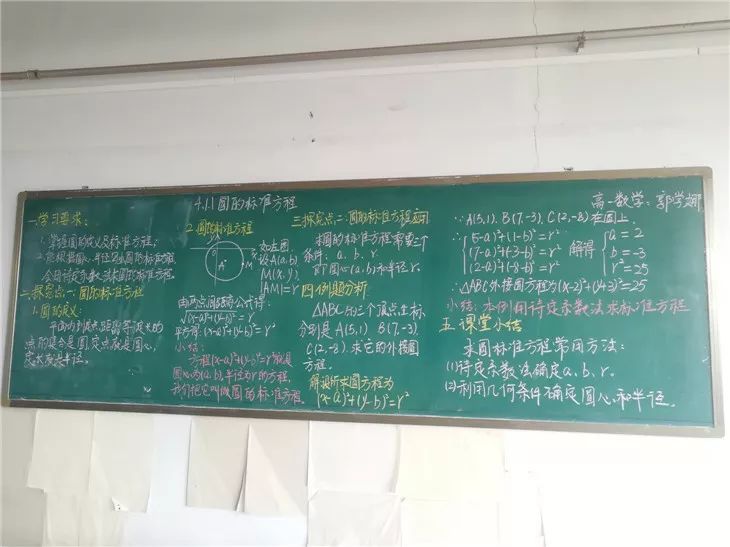 4.1.1圆的标准方程
高一数学:郭学娜
一.学习要求:
1.掌握圆的定义及标准方程;
2.能根据圆心、半径写出圆的标准方程,
会用待定系数法求圆的标准方程.
二.探究点一:圆的标准方程
1.圆的定义:
平面内到定点,距离等于定长的
点的集合是圆,定点就是圆心,
定长就是半径.
2.圆的标准方程
y
A
M
O
x
如左图
设A(a,b)
M(x,y),
|AM|=r
由两点间距离公式得:
√(x-a)²+(y-b)² = r
平方得:(x-a)²+(y-b)² = r²
小结:
方程(x-a)²+(y-b)²=r²就是
圆心为(a,b),半径为r的方程,
我们把它叫做圆的标准方程.
三.探究点二:圆的标准方程应用
求圆的标准方程需要三个
条件:a.b.r.
即圆心(a,b)和半径r.
四.例题分析
△ABC的三个顶点坐标
分别是A(5,1).B(7,-3).
C(2,-8).求它的外接圆
方程.
解:设所求圆方程为
(x-a)²+(y-b)²=r²
∵A(5,1).B(7,-3),C(2,-8)在圆上.
∴{(5-a)²+(1-b)²=r² 解得 {a=2
(7-a)²+(-3-b)²=r² b=-3
(2-a)²+(-8-b)²=r² r²=25
∴△ABC外接圆方程为(x-2)²+(y+3)²=25
小结:本例用待定系数法求标准方程
五.课堂小结
求圆标准方程常用方法:
(1)待定系数法确定a.b.r.
(2)利用几何条件确定圆心和半径.